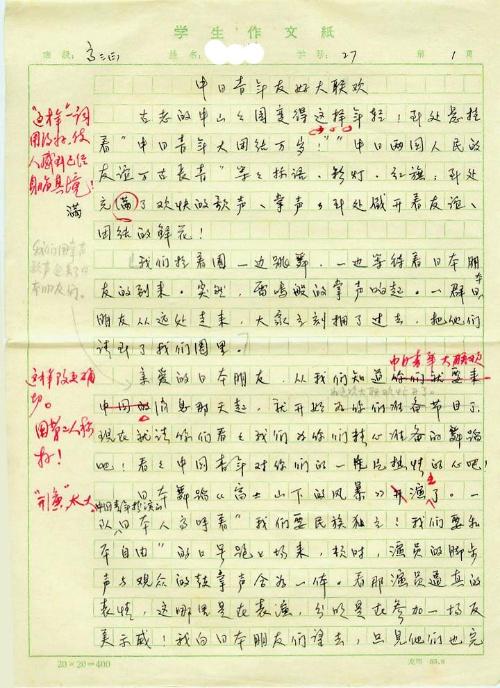 学生作文紙
班級：高三（四） 姓名： 学号：27 第1頁
中日青年友好大联欢
古老的中山公园变得这样年轻！到处悬挂
着"中日青年大团结万岁！""中日两国人民的
友谊万古长青"等之标语、彩灯、红旗；到处
充满了欢快的歌声、掌声；到处盛开着友谊、
团结的鲜花！
我们拉着圈一边跳舞，一边等待着日本朋
友的到来。突然，雷鸣般的掌声响起。一群日本
朋友从远处走来，大家立刻拥了过去，把他们
请到了我们圈里。
亲爱的日本朋友，从我们知道你们就要来
中国的消息那天起，就开始为你们准备节目了。
现在就请你们看看我们为你们精心准备的舞蹈
吧！看看中国青年对你们的一片热情的心吧！
日本舞蹈《富士山下的风暴》开演了。一
队日本人高呼着"我们要民族独立！我们要和
平自由"的口号跑上场来，顿时，演员的脚步
声与观众的鼓掌声合为一体。看那演员逼真的
表情，这哪里是在表演，分明是在参加一场反
美示威！我向日本朋友们望去，只见他们也完
20×20=400
"这样"一词
用得好，使
人感到已经
身临其境！
满
我们用掌声
这样改更确
切。
用第二人称
好！
"开演"太大
中日青年大联欢
中国青年扮演的
上